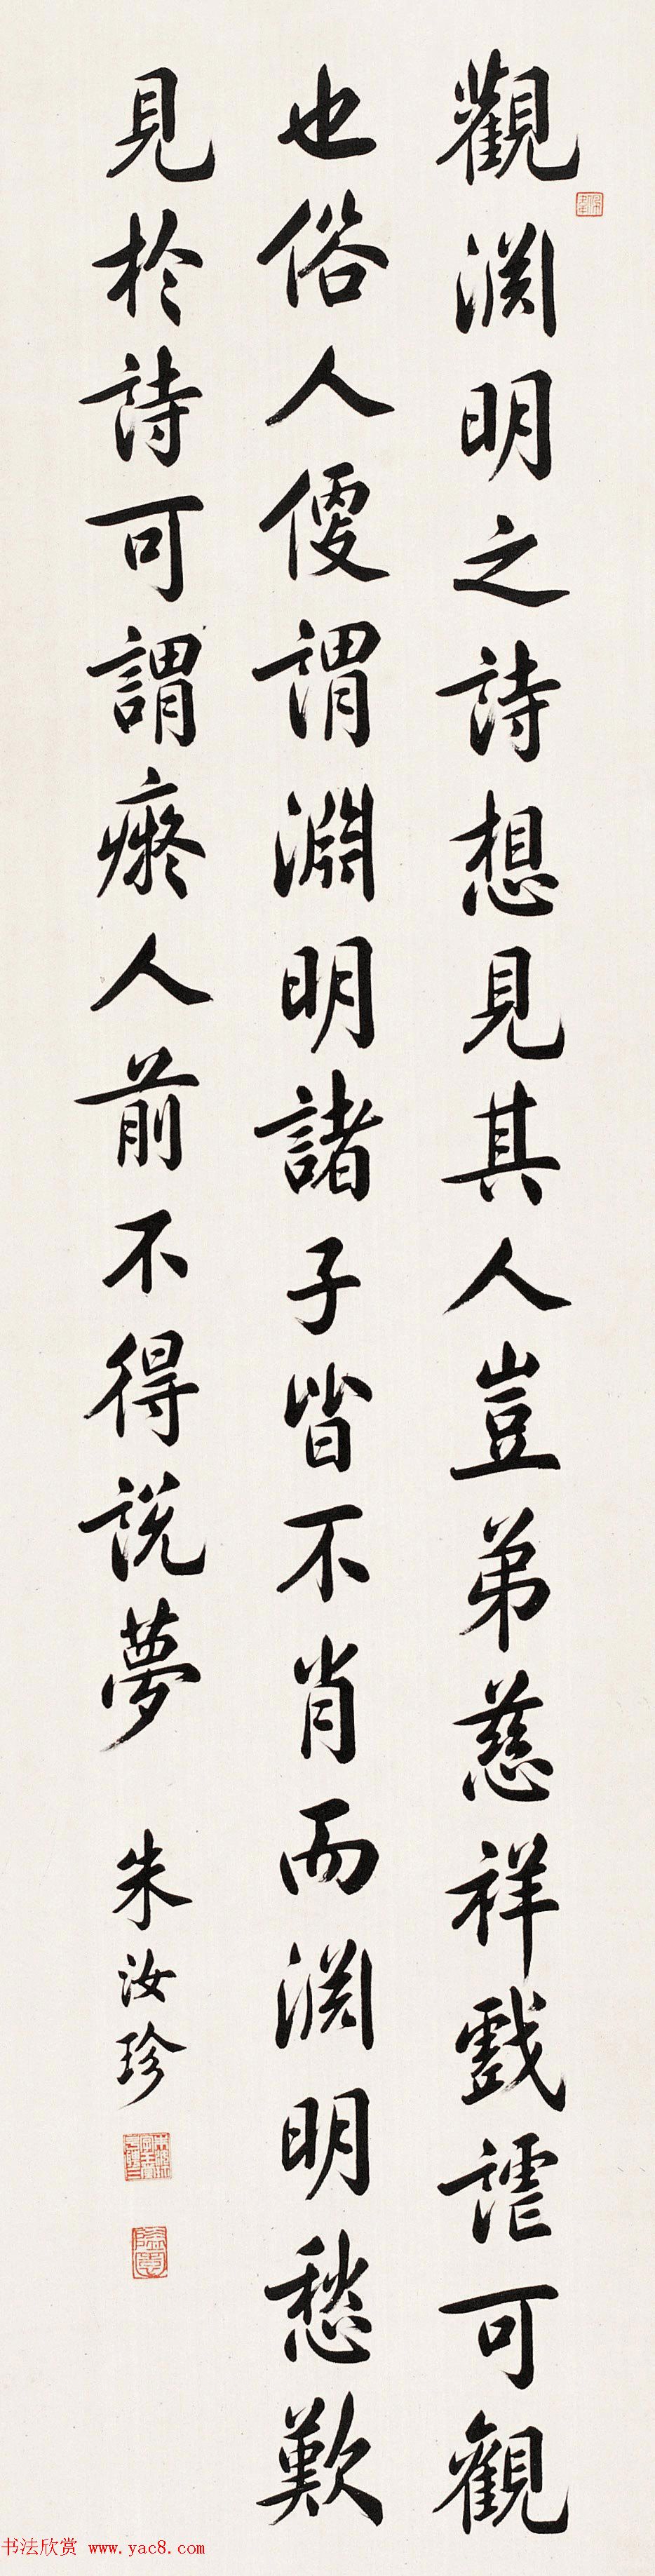 觀渊明之詩想見其人豈弟慈祥戲謔可觀
也俗人便謂淵明諸子皆不肖而渊明愁歎
見於詩可謂癡人前不得説夢
朱汝珍
书法欣赏 www.yac8.com